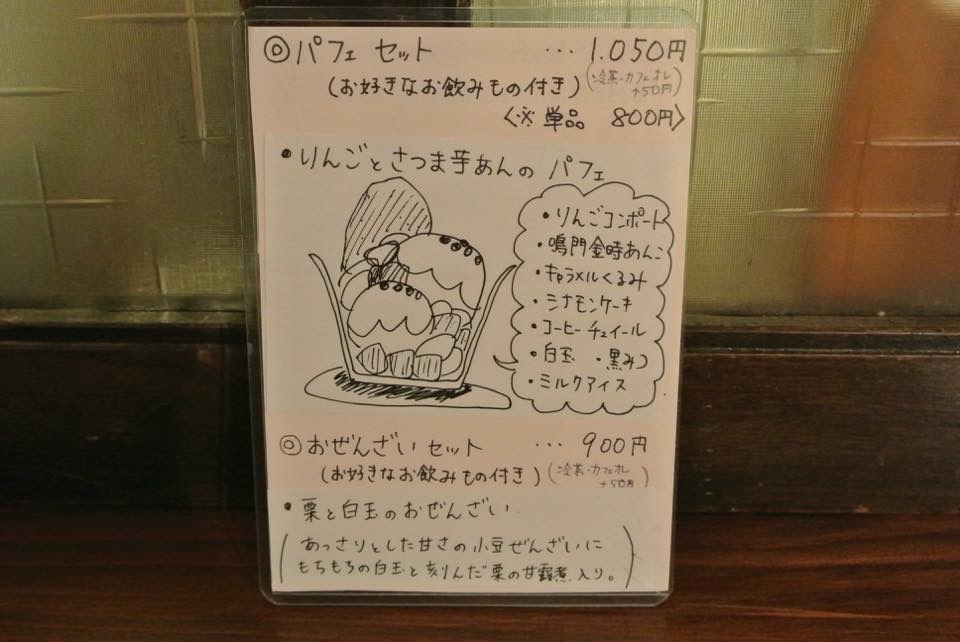 ◎パフェ セット ･･･ 1.050円
(お好きなお飲みもの付き) (冷茶・カフェオレ +50円)
〈※単品 800円〉
・りんごとさつま芋あんの パフェ
・りんごコンポート
・鳴門金時あんこ
・キャラメルくるみ
・シナモンケーキ
・コーヒーチュイール
・白玉 ・黒みつ
・ミルクアイス
◎おぜんざいセット ･･･ 900円
(お好きなお飲みもの付き) (冷茶・カフェオレ +50円)
・栗と白玉のおぜんざい
(あっさりとした甘さの小豆ぜんざいに
もちもちの白玉と刻んだ栗の甘露煮入り。)